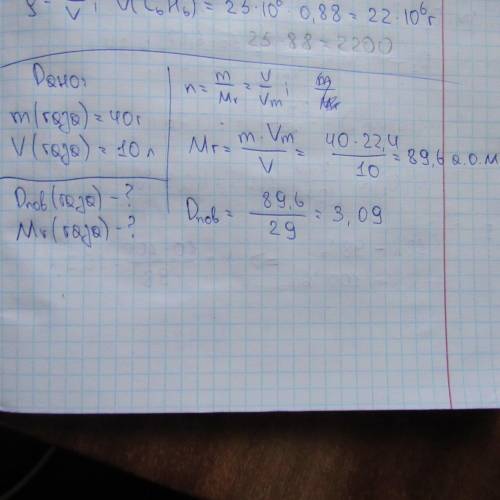 ρ = — V ; V(C₆H₆) = 25·10⁶ · 0,88 = 22·10⁶ г
25·88=2200
Дано:
m(газа) = 40 г
V(газа) = 10 л
Dпов(газа) - ?
Mr(газа) - ?
n = m/Mr = V/Vm ;
Mr = m·Vm/V = 40·22,4/10 = 89,6 а.о.м
Dпов = 89,6/29 = 3,09